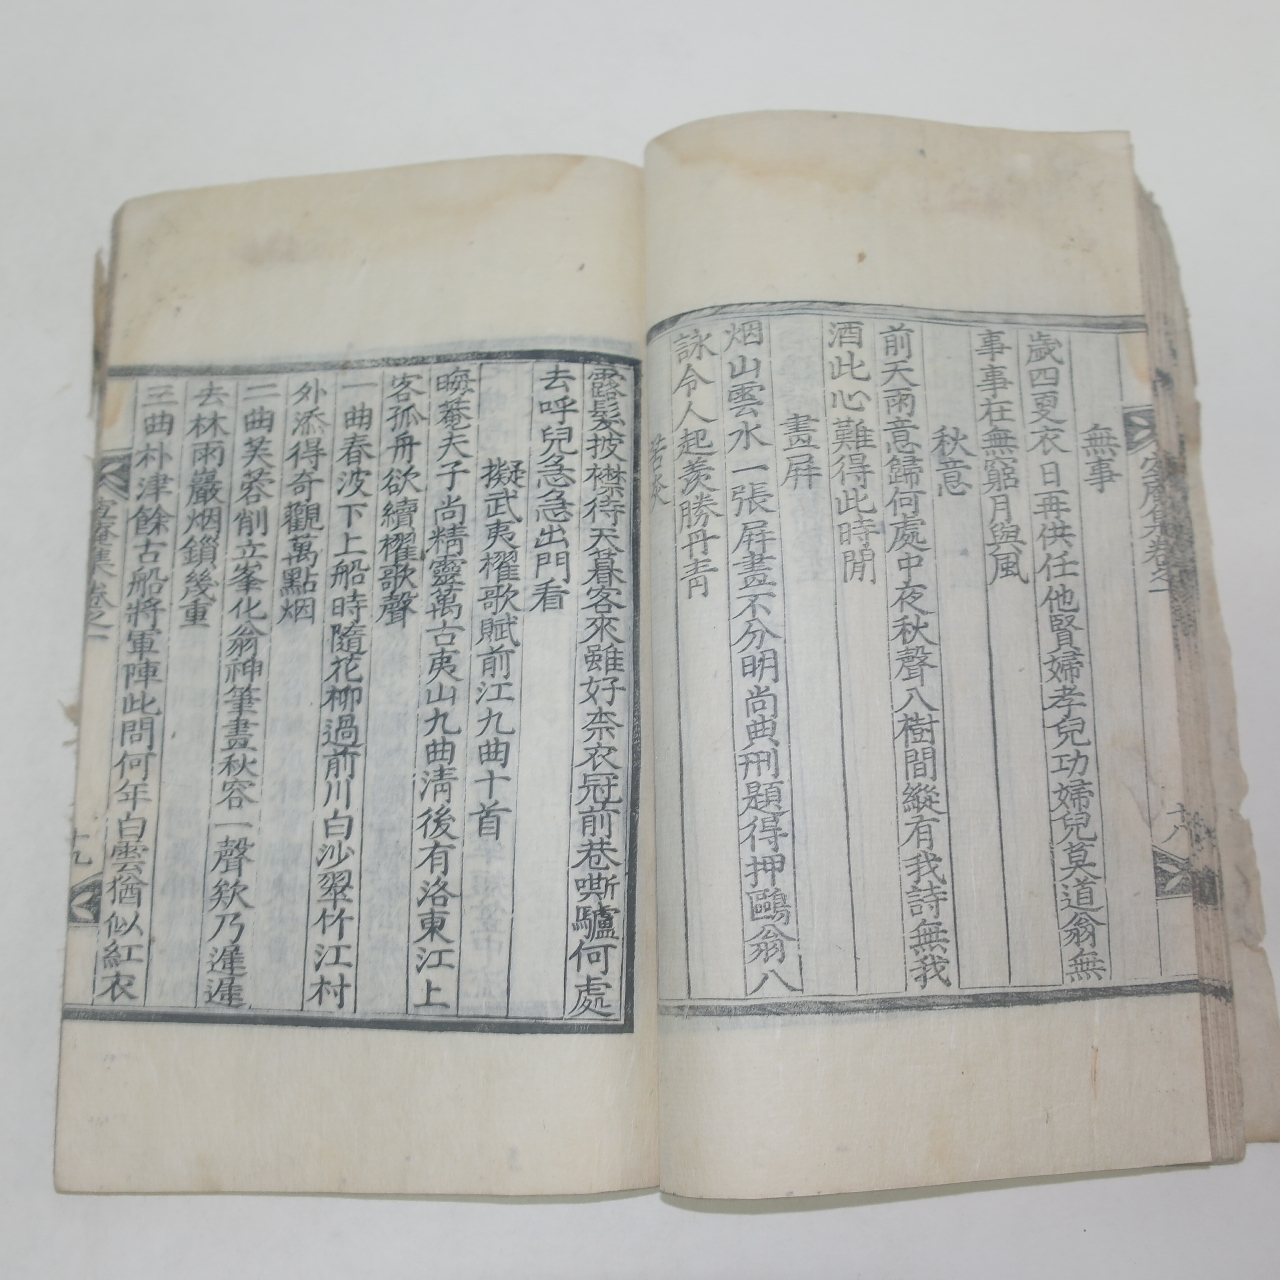 無事
歲四夏衣日再供任他賢婦孝兒功婦兒莫道翁無
事事在無窮月與風
秋意
前天雨意歸何處中夜秋聲入樹間縱有我詩無我
酒此心難得此時閒
畫屛
烟山雲水一張屛畫不分明尚典刑題得押鷗翁八
詠令人起羡勝丹靑
苦炎
十八
露髮披襟待天暮客來雖好柰衣冠前巷嘶驢何處
去呼兒急急出門看
擬武夷櫂歌賦前江九曲十首
晦菴夫子尚精靈萬古夷山九曲淸後有洛東江上
客孤舟欲續櫂歌聲
一曲春波下上船時隨花柳過前川白沙翠竹江村
外添得奇觀萬點烟
二曲芙蓉削立峯化翁神筆畫秋容一聲欸乃遲遲
去林雨巖烟鎖幾重
三曲朴津餘古船將軍陣此問何年白雲猶似紅衣
集卷之一
十九